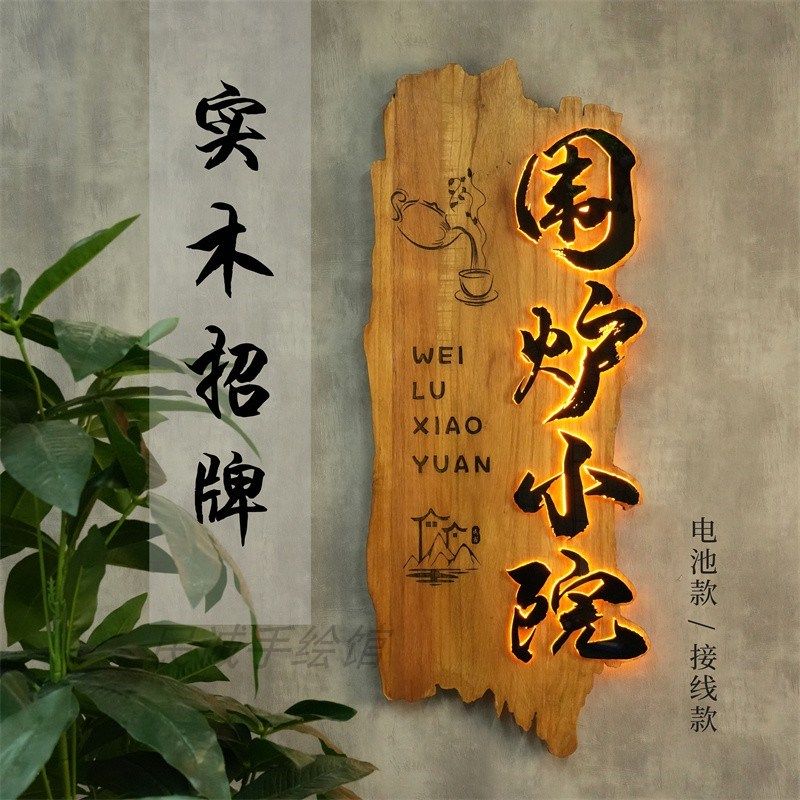 实木招牌
围炉小院
WEI
LU
XIAO
YUAN
电池款/接线款
手绘馆